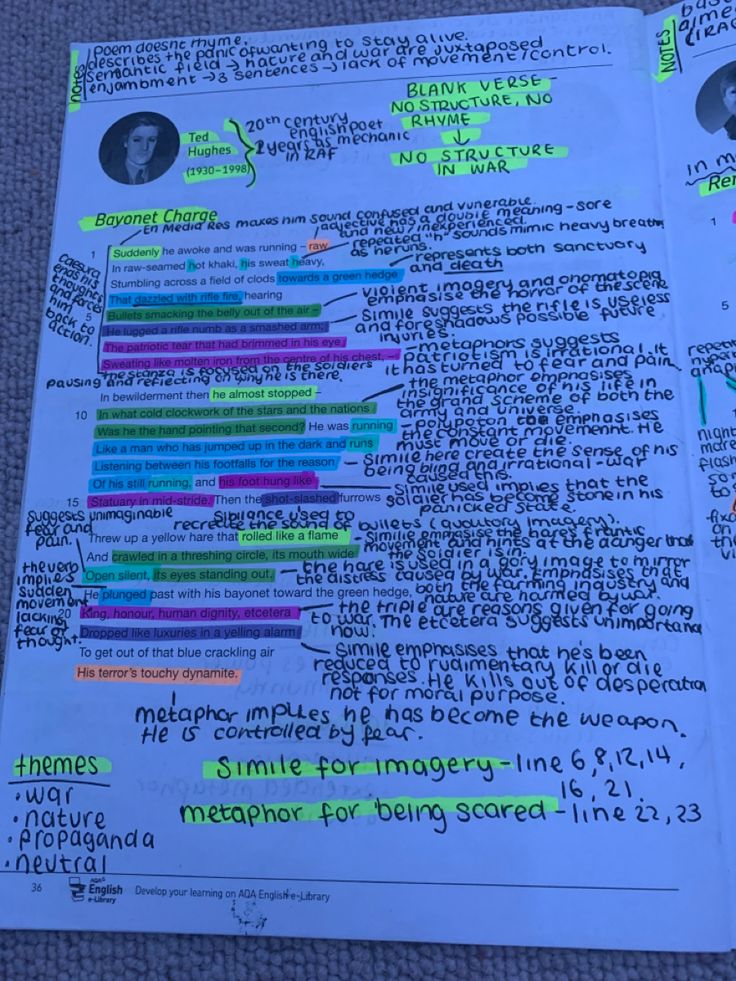 NOTES
poem doesnt rhyme.
describes the panic of wanting to stay alive.
semantic field → nature and war are juxtaposed
enjambment → 3 sentences → lack of movement/control.
NOTES
Ted
Hughes
(1930–1998)
20th century
english poet
2 years as mechanic
in RAF
BLANK VERSE –
NO STRUCTURE, NO
RHYME
↓
NO STRUCTURE
IN WAR
Bayonet Charge
En Media Res makes him sound confused and vunerable.
adjective has a double meaning – sore
and new/inexperienced.
repeated "h" sounds mimic heavy breath
as he runs.
represents both sanctuary
and death
Caesura
ends his
thoughts
and forces
him
back to
action.
1 Suddenly he awoke and was running – raw
In raw-seamed hot khaki, his sweat heavy,
Stumbling across a field of clods towards a green hedge
That dazzled with rifle fire, hearing
5 Bullets smacking the belly out of the air –
He lugged a rifle numb as a smashed arm;
The patriotic tear that had brimmed in his eye
Sweating like molten iron from the centre of his chest, –
violent imagery and onomatopia
emphasise the horror of the scene
Simile suggests the rifle is useless
and foreshadows possible future
injuries.
metaphors suggests
patriotism is irrational. it
it has turned to fear and pain.
the stanza is focused on the soldiers
pausing and reflecting on why he is there.
In bewilderment then he almost stopped –
10 In what cold clockwork of the stars and the nations
Was he the hand pointing that second? He was running
Like a man who has jumped up in the dark and runs
Listening between his footfalls for the reason
Of his still running, and his foot hung like
15 Statuary in mid-stride. Then the shot-slashed furrows
the metaphor emphasises
insignificance of his life in
the grand scheme of both the
army and universe.
polypoton emphasises
the constant movemenht. He
must move or die.
Simile here create the sense of his
being blind and irrational – war
caused this.
Simile used implies that the
soldier has become stone in his
panicked state.
Suggests unimaginable
fear and
pain.
Sibilance used to
recreate the sound of bullets (auditory imagery).
Threw up a yellow hare that rolled like a flame
And crawled in a threshing circle, its mouth wide
Open silent, its eyes standing out.
He plunged past with his bayonet toward the green hedge,
20 King, honour, human dignity, etcetera
Dropped like luxuries in a yelling alarm
To get out of that blue crackling air
His terror's touchy dynamite.
Simile emphasise the hares frantic
movement and hints at the danger that
the soldier is in.
the hare is used in a gory image to mirror
the distress caused by war. Emphasises that
both the farming industry and
nature are harmed by war.
the verb
implies
sudden
movement
lacking
fear or
thought.
the triple are reasons given for going
to war. The etcetera suggests unimportant
now.
Simile emphasises that he's been
reduced to rudimentary kill or die
responses. He kills out of desperation
not for moral purpose.
metaphor implies he has become the weapon.
He is controlled by fear.
themes
• war
• nature
• propaganda
• neutral
Simile for imagery – line 6,8,12,14,
16, 21.
metaphor for being scared – line 22, 23
36
AQA
English
e-Library
Develop your learning on AQA English e-Library
in m
Ren
1
5
repetit
night
mare
flash